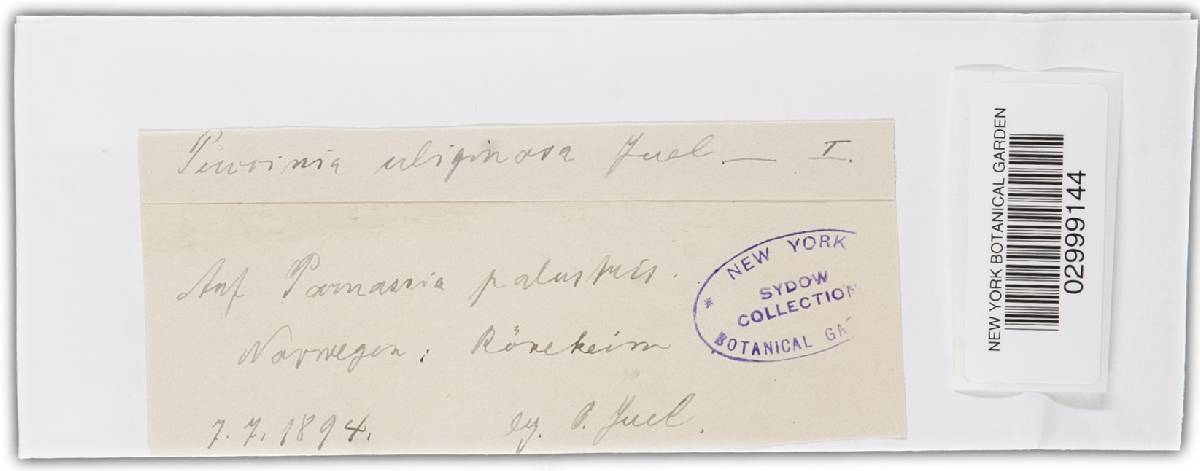 Puccinia uliginosa Juel — I.
Auf Parnassia palustris.
Norwegen: Röneheim
7.7.1894. leg. O. Juel.
* NEW YORK
SYDOW
COLLECTION
BOTANICAL GA
NEW YORK BOTANICAL GARDEN
02999144